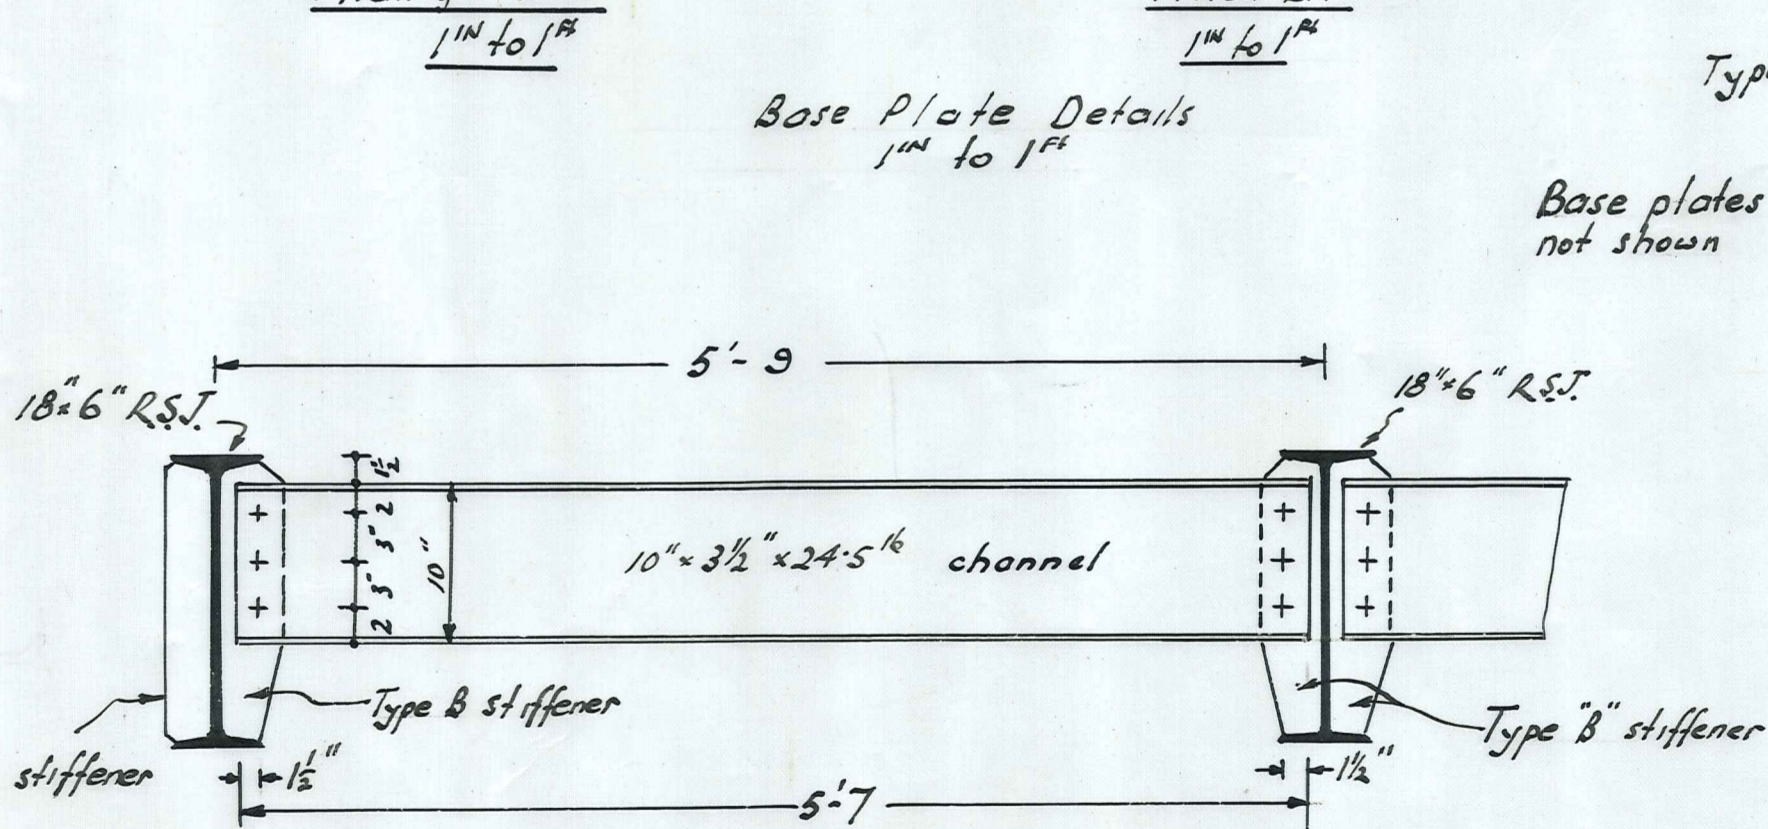 1IN to 1Ft
1IN to 1Ft
Type
Base Plate Details
1IN to 1Ft
Base plates
not shown
5'-9
18"×6" R.S.J.
18"×6" R.S.J.
1½
2
3"
3"
2
10"
10"×3½"×24·5lb channel
Type B stiffener
Type "B" stiffener
stiffener
1½"
1½"
5'-7